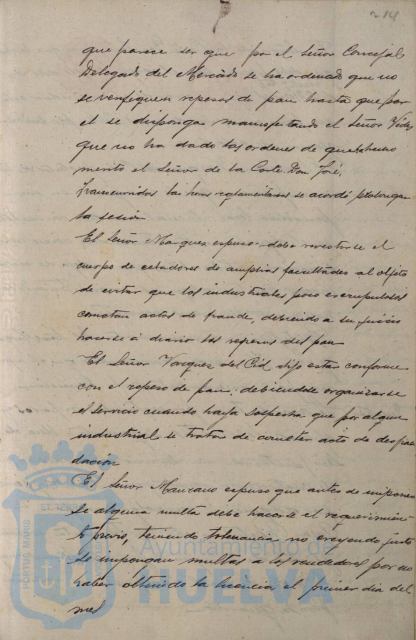 214
que parece ser que por el Señor Concejal
Delegado del Mercado se ha ordenado que no
se verifiquen repesos de pan hasta que por
el se disponga manifestando el Señor Vides
que no ha dado las ordenes de que
el Señor de la Corte Don José,
transcurridas las horas reglamentarias se acordó prolongar
la sesión
El Señor Marquez expuso debe revestirse el
cuerpo de celadores de amplias facultades al objeto
de evitar que los industriales poco escrupulosos
cometan actos de fraude, debiendo a su juicio
hacerse á diario los repesos del pan
El Señor Vazquez del Cid dijo estar conforme
con el repeso de pan, debiendose organizarse
el servicio cuando haya sospecha que por algun
industrial se trata de cometer acto de
dacion
El Señor Manzano expuso que antes de imponer
se alguna multa debe hacerse el requerimien
to previo, teniendo tolerancia no creyendo justo
se impongan multas a los vendedores por no
haber obtenido la licencia el primer dia del
mes
Ayuntamiento de
HUELVA